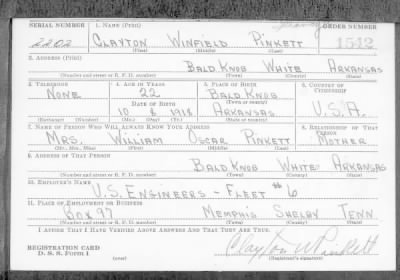 SERIAL NUMBER 1. NAME (Print) ORDER NUMBER
2202 CLAYTON WINFIELD PINKETT 1542
(First) (Middle) (Last)
2. ADDRESS (Print)
BALD KNOB WHITE ARKANSAS
(Number and street or R. F. D. number) (Town) (County) (State)
3. TELEPHONE 4. AGE IN YEARS 5. PLACE OF BIRTH 6. COUNTRY OF CITIZENSHIP
NONE 22 BALD KNOB
DATE OF BIRTH (Town or county)
10 8 1918 ARKANSAS U.S.A.
(Exchange) (Number) (Mo.) (Day) (Yr.) (State or country)
7. NAME OF PERSON WHO WILL ALWAYS KNOW YOUR ADDRESS 8. RELATIONSHIP OF THAT PERSON
MRS. WILLIAM OSCAR PINKETT MOTHER
(Mr., Mrs., Miss) (First) (Middle) (Last)
9. ADDRESS OF THAT PERSON
BALD KNOB WHITE ARKANSAS
(Number and street or R. F. D. number) (Town) (County) (State)
10. EMPLOYER'S NAME
U.S. ENGINEERS - FLEET #6
11. PLACE OF EMPLOYMENT OR BUSINESS
BOX 97 MEMPHIS SHELBY TENN
(Number and street or R. F. D. number) (Town) (County) (State)
I AFFIRM THAT I HAVE VERIFIED ABOVE ANSWERS AND THAT THEY ARE TRUE.
REGISTRATION CARD
D. S. S. Form 1 (over) Clayton W Pinkett
(Registrant's signature)